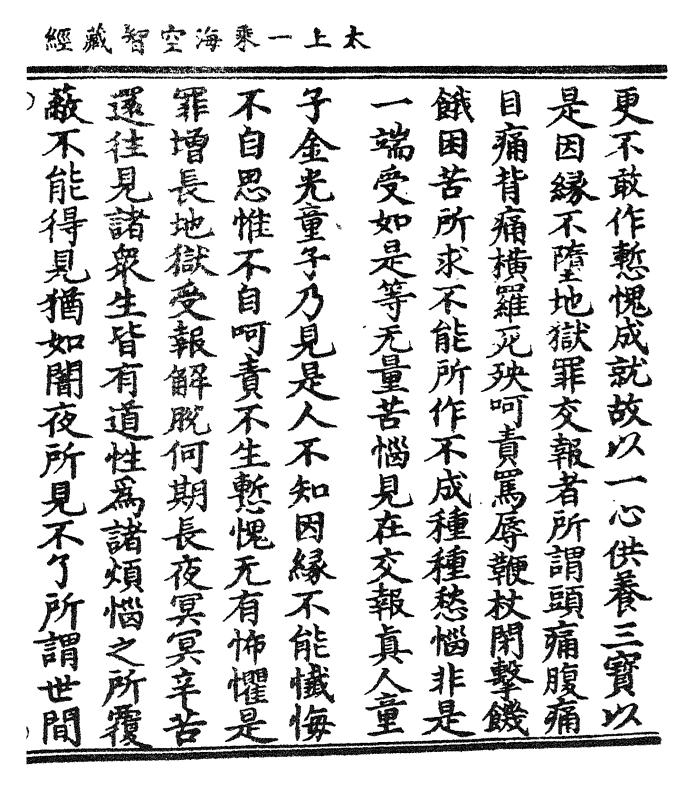 太上一乘海空智藏經
更不敢作慙愧成就故以一心供養三寶以
是因緣不墮地獄罪交報者所謂頭痛腹痛
目痛背痛橫羅死殃呵責罵辱鞭杖閉擊饑
餓困苦所求不能所作不成種種愁惱非是
一端受如是等无量苦惱見在交報真人童
子金光童子乃見是人不知因緣不能懴悔
不自思惟不自呵責不生慙愧无有怖懼是
罪增長地獄受報解脫何期長夜冥冥辛苦
還往見諸衆生皆有道性爲諸煩惱之所覆
蔽不能得見猶如闇夜所見不了所謂世間